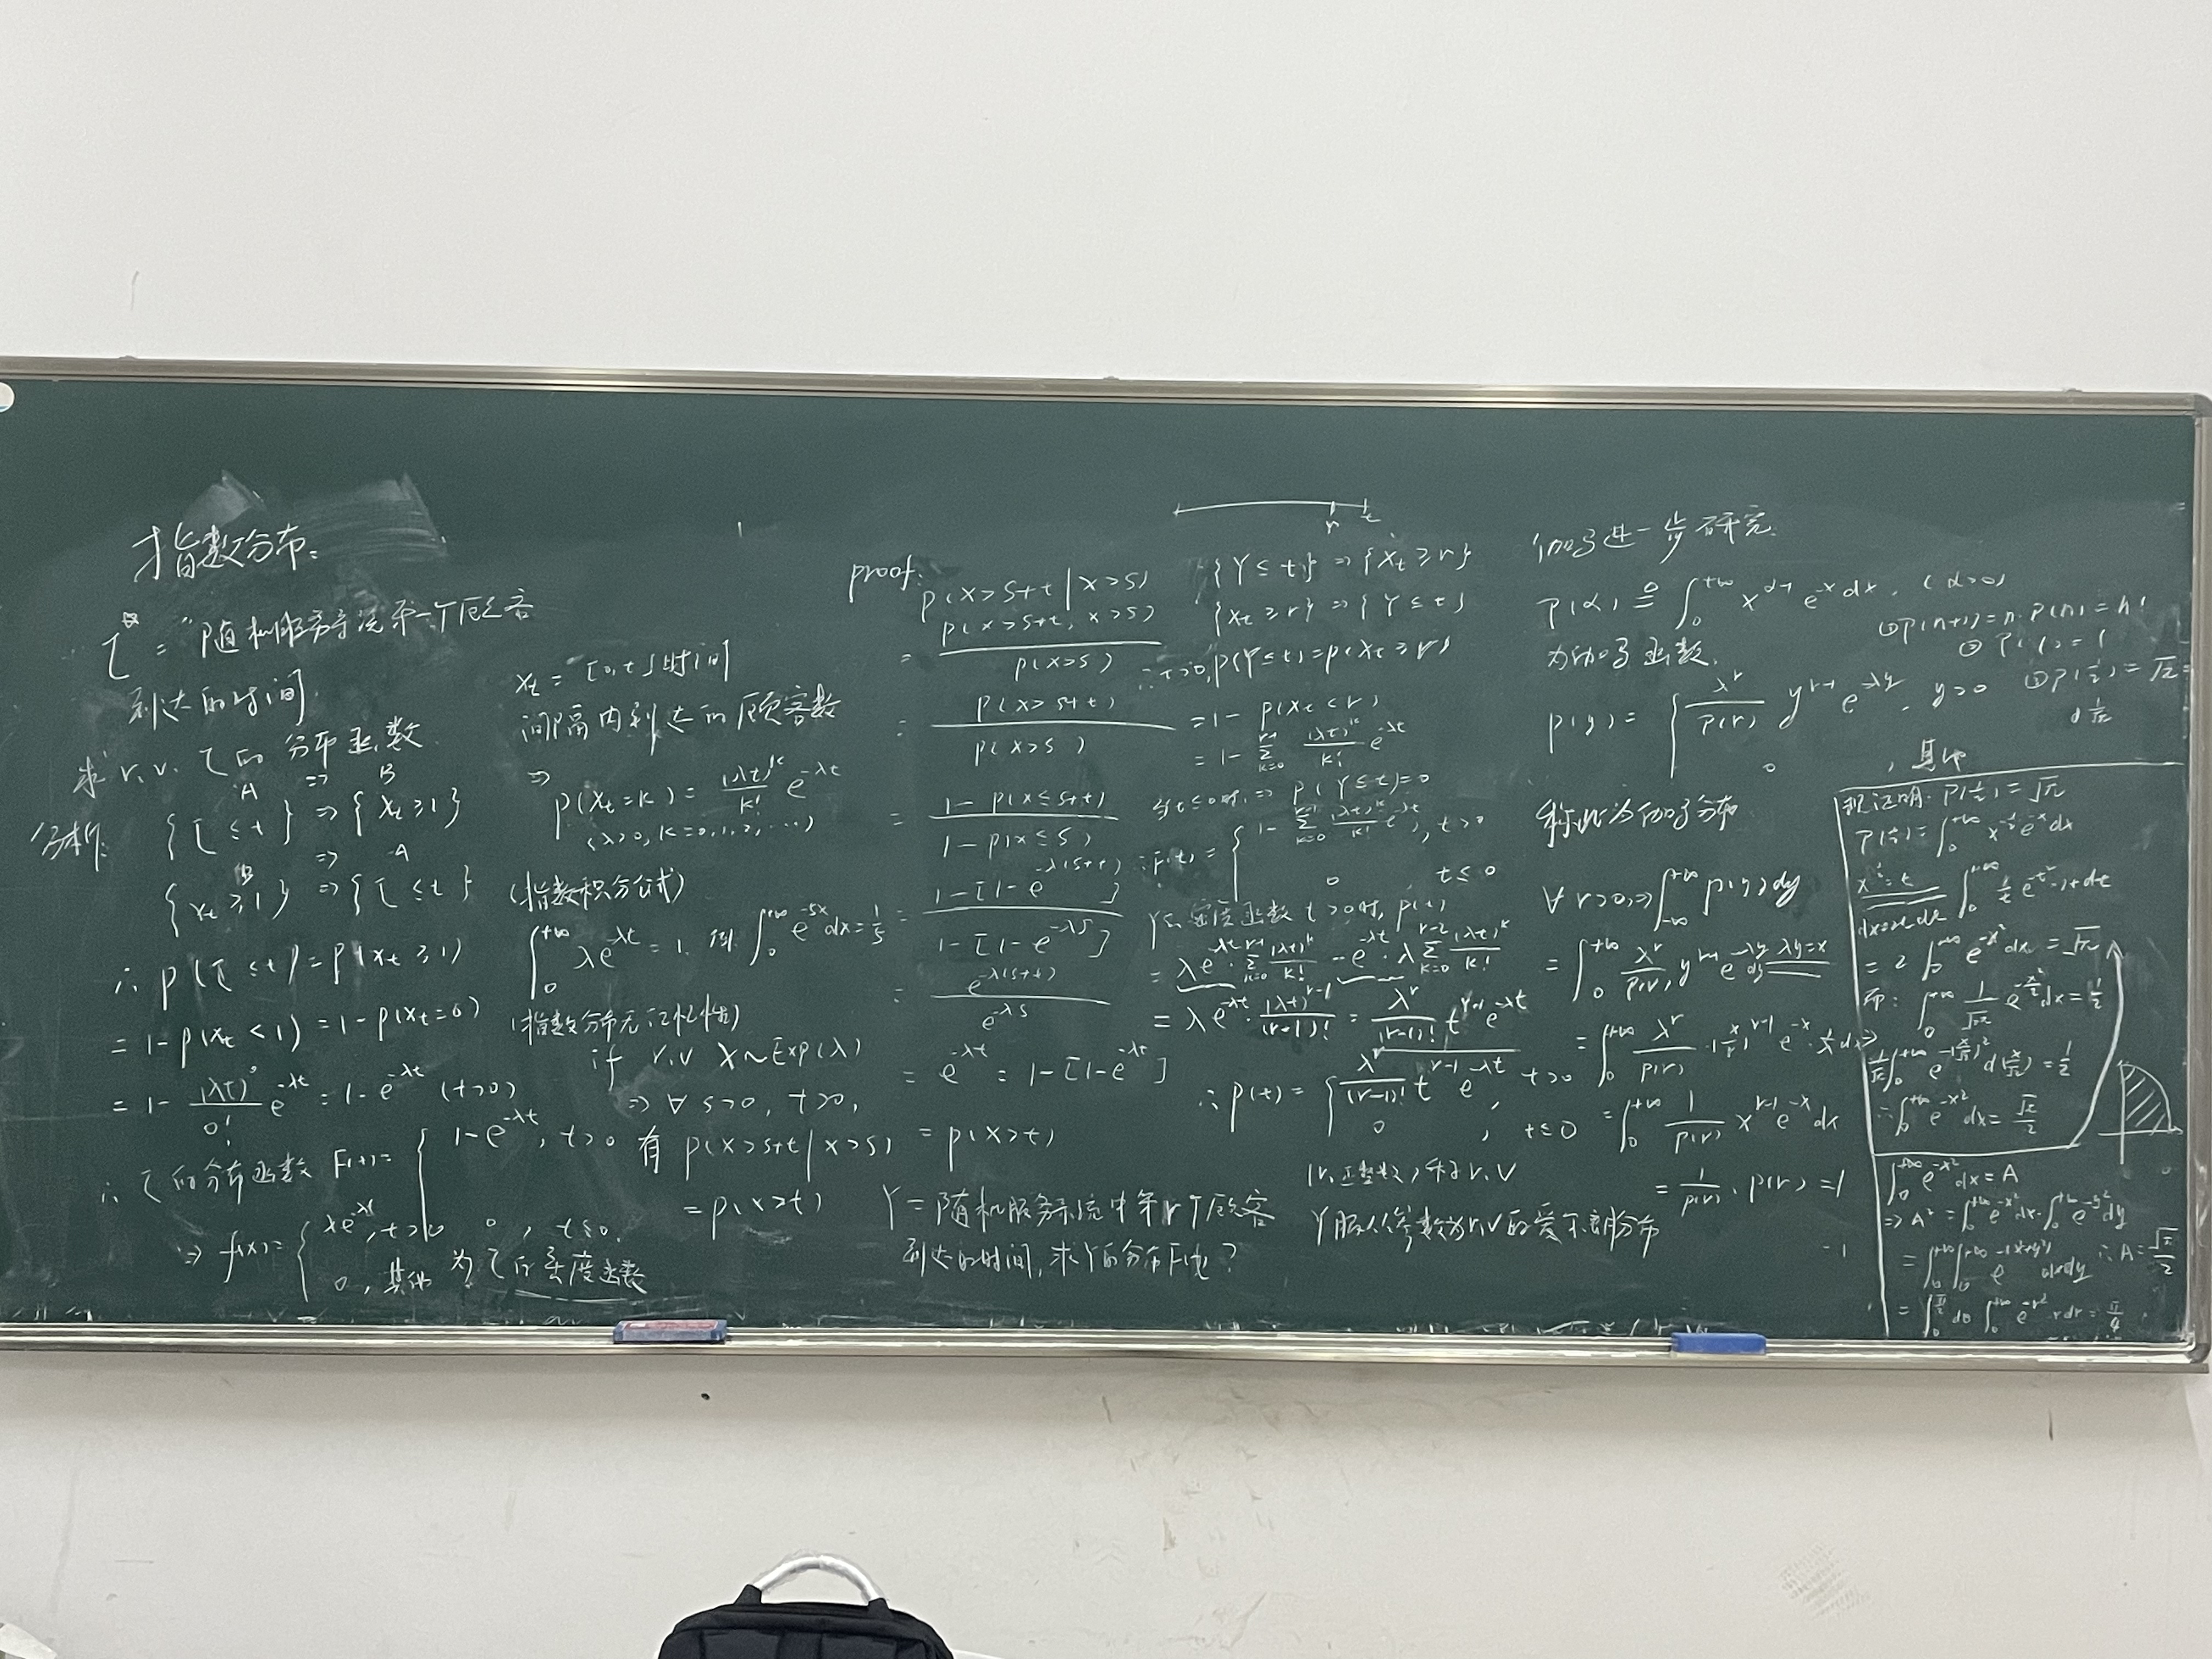 指数分布:
τ = "随机服务系统第一个顾客
到达的时间
求 r.v. τ的分布函数
A ⇒ B
分析: {τ ≤ t} ⇒ {Xt ≥ 1}
B ⇒ A
{Xt ≥ 1} ⇒ {τ ≤ t}
∴ P(τ ≤ t) = P(Xt ≥ 1)
= 1 - P(Xt < 1) = 1 - P(Xt = 0)
= 1 - (λt)^0/0! e^{-λt} = 1 - e^{-λt} (t>0)
∴ τ的分布函数 F(t) = { 1-e^{-λt}, t>0
0, t≤0.
⇒ f(x) = { λe^{-λt}, t>0
0, 其他 为τ的密度函数
Xt = [0,t]时间
间隔内到达的顾客数
⇒
P(Xt=k) = (λt)^k/k! e^{-λt}
(λ>0, k=0,1,2,...)
(指数积分公式)
∫_0^{+∞} λe^{-λt} = 1. 例 ∫_0^{+∞} e^{-5x}dx = 1/5
(指数分布无记忆性)
if r.v X~Exp(λ)
⇒ ∀ s>0, t>0,
有 P(X>s+t|X>s)
= P(X>t)
proof:
P(X>s+t|X>s)
= P(X>s+t, X>s)/P(X>s)
= P(X>s+t)/P(X>s)
= (1-P(X≤s+t))/(1-P(X≤s))
= (1-[1-e^{-λ(s+t)}])/(1-[1-e^{-λs}])
= e^{-λ(s+t)}/e^{-λs}
= e^{-λt} = 1-[1-e^{-λt}]
= P(X>t)
Y = 随机服务系统中第r个顾客
到达的时间, 求Y的分布F(t)?
r t
{Y ≤ t} ⇒ {Xt ≥ r}
{Xt ≥ r} ⇒ {Y ≤ t}
∴ t>0, P(Y≤t) = P(Xt ≥ r)
= 1 - P(Xt < r)
= 1 - Σ_{k=0}^{r-1} (λt)^k/k! e^{-λt}
当t≤0时, ⇒ P(Y≤t)=0
∴ F(t) = { 1 - Σ_{k=0}^{r-1} (λt)^k/k! e^{-λt}, t>0
0 t≤0
密度函数 t>0时, P(t)
= λe^{-λt} Σ_{k=0}^{r-1} (λt)^k/k! - e^{-λt}·λ Σ_{k=0}^{r-2} (λt)^k/k!
= λe^{-λt}·(λt)^{r-1}/(r-1)! = λ^r/(r-1)! t^{r-1}e^{-λt}
∴ P(t) = { λ^r/(r-1)! t^{r-1}e^{-λt}, t>0
0, t≤0
(r,正整数) 称 r.v
Y服从参数为r,λ的爱尔朗分布
伽马进一步研究.
Γ(α) ≜ ∫_0^{+∞} x^{α-1}e^{-x}dx. (α>0)
为伽马函数.
①Γ(n+1)=n·Γ(n)=n!
② Γ(1)=1
③Γ(1/2)=√π
P(y) = { λ^r/Γ(r) y^{r-1}e^{-λy}, y>0
0 , 其他
称此为伽马分布
∀ r>0, ⇒ ∫_{-∞}^{+∞} P(y)dy
= ∫_0^{+∞} λ^r/Γ(r) y^{r-1}e^{-λy}dy λy=x
= ∫_0^{+∞} λ^r/Γ(r)·(x/λ)^{r-1}e^{-x}·1/λ dx
= ∫_0^{+∞} 1/Γ(r) x^{r-1}e^{-x}dx
= 1/Γ(r)·Γ(r) = 1
现证明: Γ(1/2)=√π
Γ(1/2) = ∫_0^{+∞} x^{-1/2}e^{-x}dx
x^{1/2}=t ∫_0^{+∞} 1/t e^{-t²}·2tdt
= 2∫_0^{+∞} e^{-x²}dx = √π
而: ∫_0^{+∞} 1/√2π e^{-x²/2}dx = 1/2
1/√π ∫_0^{+∞} e^{-(x/√2)²}d(x/√2) = 1/2
∴ ∫_0^{+∞} e^{-x²}dx = √π/2
∫_0^{+∞} e^{-x²}dx = A
⇒ A² = ∫_0^{+∞} e^{-x²}dx·∫_0^{+∞} e^{-y²}dy
= ∫_0^{+∞}∫_0^{+∞} e^{-(x²+y²)}dxdy ∴ A = √π/2
= ∫_0^{π/2} dθ ∫_0^{+∞} e^{-r²}·rdr = π/4